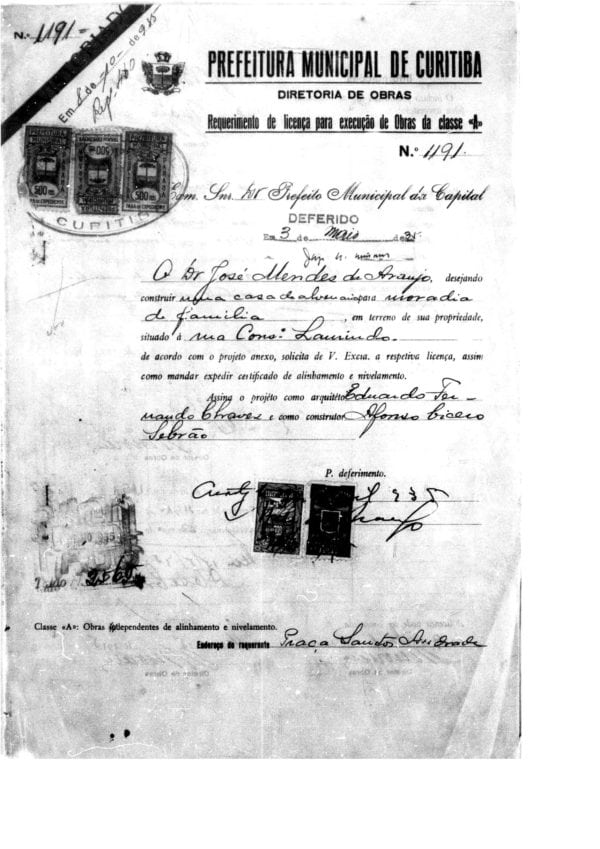 N.º 1191-
Em 8 de 10- de 935
PREFEITURA MUNICIPAL DE CURITIBA
DIRETORIA DE OBRAS
Requerimento de licença para execução de Obras da classe «A»
N.º 1191.
PREFEITURA
500 RS.
CURITIBA
Exm. Snr. Dr Prefeito Municipal da Capital
DEFERIDO
Em 3 de maio de 35
O Dr José Mendes de Araujo, desejando
construir uma casa de alvenaria para moradia
de familia, em terreno de sua propriedade,
situado á rua Cons: Laurindo.
de acordo com o projeto anexo, solicita de V. Excia. a respetiva licença, assim
como mandar expedir certificado de alinhamento e nivelamento.
Assina o projéto como arquitéto Eduardo Fer-
nando Chaves e como construtor Afonso Cicero
Sebrão
P. deferimento.
935
Classe «A»: Obras dependentes de alinhamento e nivelamento.
Endereço do requerente Praça Santos Andrade